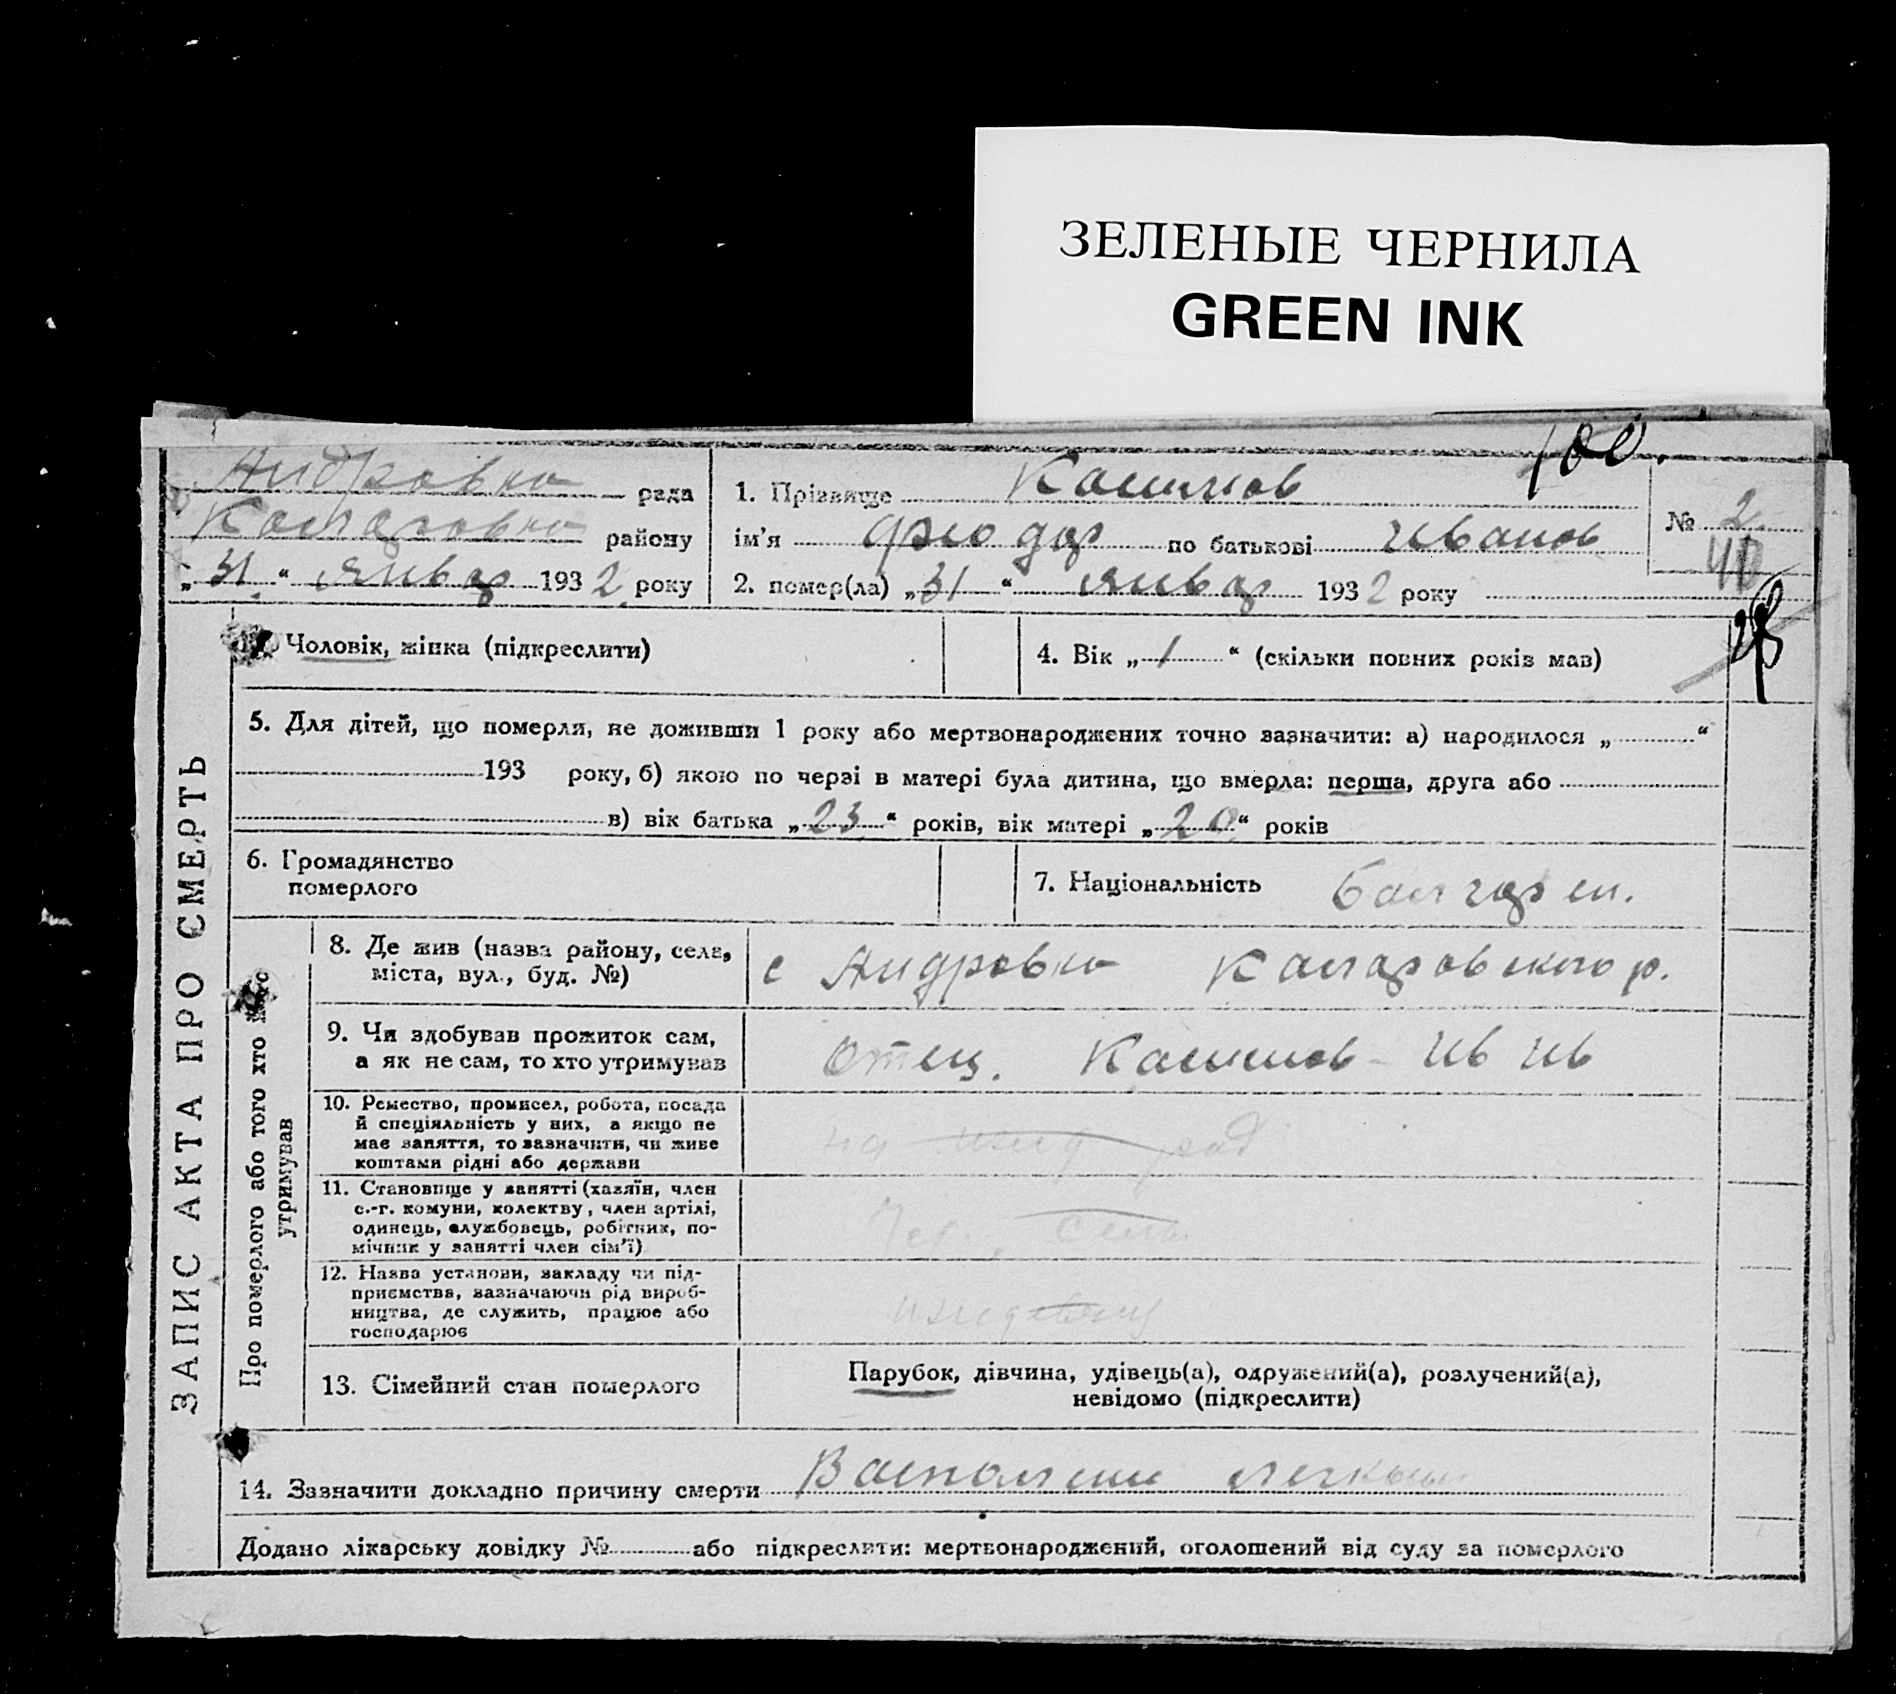 ЗЕЛЕНЫЕ ЧЕРНИЛА
GREEN INK
100.
Андровка рада
району
„31“ январ 1932 року
1. Прізвище Кашинов
ім'я Фиодар по батькові Иванов
2. помер(ла) „31“ январ 1932 року
№ 2
40
ЗАПИС АКТА ПРО СМЕРТЬ
Чоловік, жінка (підкреслити)
4. Вік „1“ (скільки повних років мав)
5. Для дітей, що померли, не доживши 1 року або мертвонароджених точно зазначити: а) народилося „ “
193 року, б) якою по черзі в матері була дитина, що вмерла: перша, друга або
в) вік батька „23“ років, вік матері „20“ років
6. Громадянство
померлого
7. Національність болгарин.
Про померлого або того хто його
утримував
8. Де жив (назва району, села,
міста, вул., буд. №)
с Андровка р.
9. Чи здобував прожиток сам,
а як не сам, то хто утримував
Отец. Кашинов Ив Ив
10. Ремество, промисел, робота, посада
й спеціяльність у них, а якщо не
має заняття, то зазначити, чи живе
коштами рідні або держави
11. Становище у занятті (хазяїн, член
с.-г. комуни, колективу, член артілі,
одинець, службовець, робітник, по-
мічник у занятті член сім'ї)
12. Назва установи, закладу чи під-
приємства, зазначаючи рід вироб-
ництва, де служить, працює або
господарює
13. Сімейний стан померлого
Парубок, дівчина, удівець(а), одружений(а), розлучений(а),
невідомо (підкреслити)
14. Зазначити докладно причину смерти Воспаление легких
Додано лікарську довідку № або підкреслити: мертвонароджений, оголошений від суду за померлого